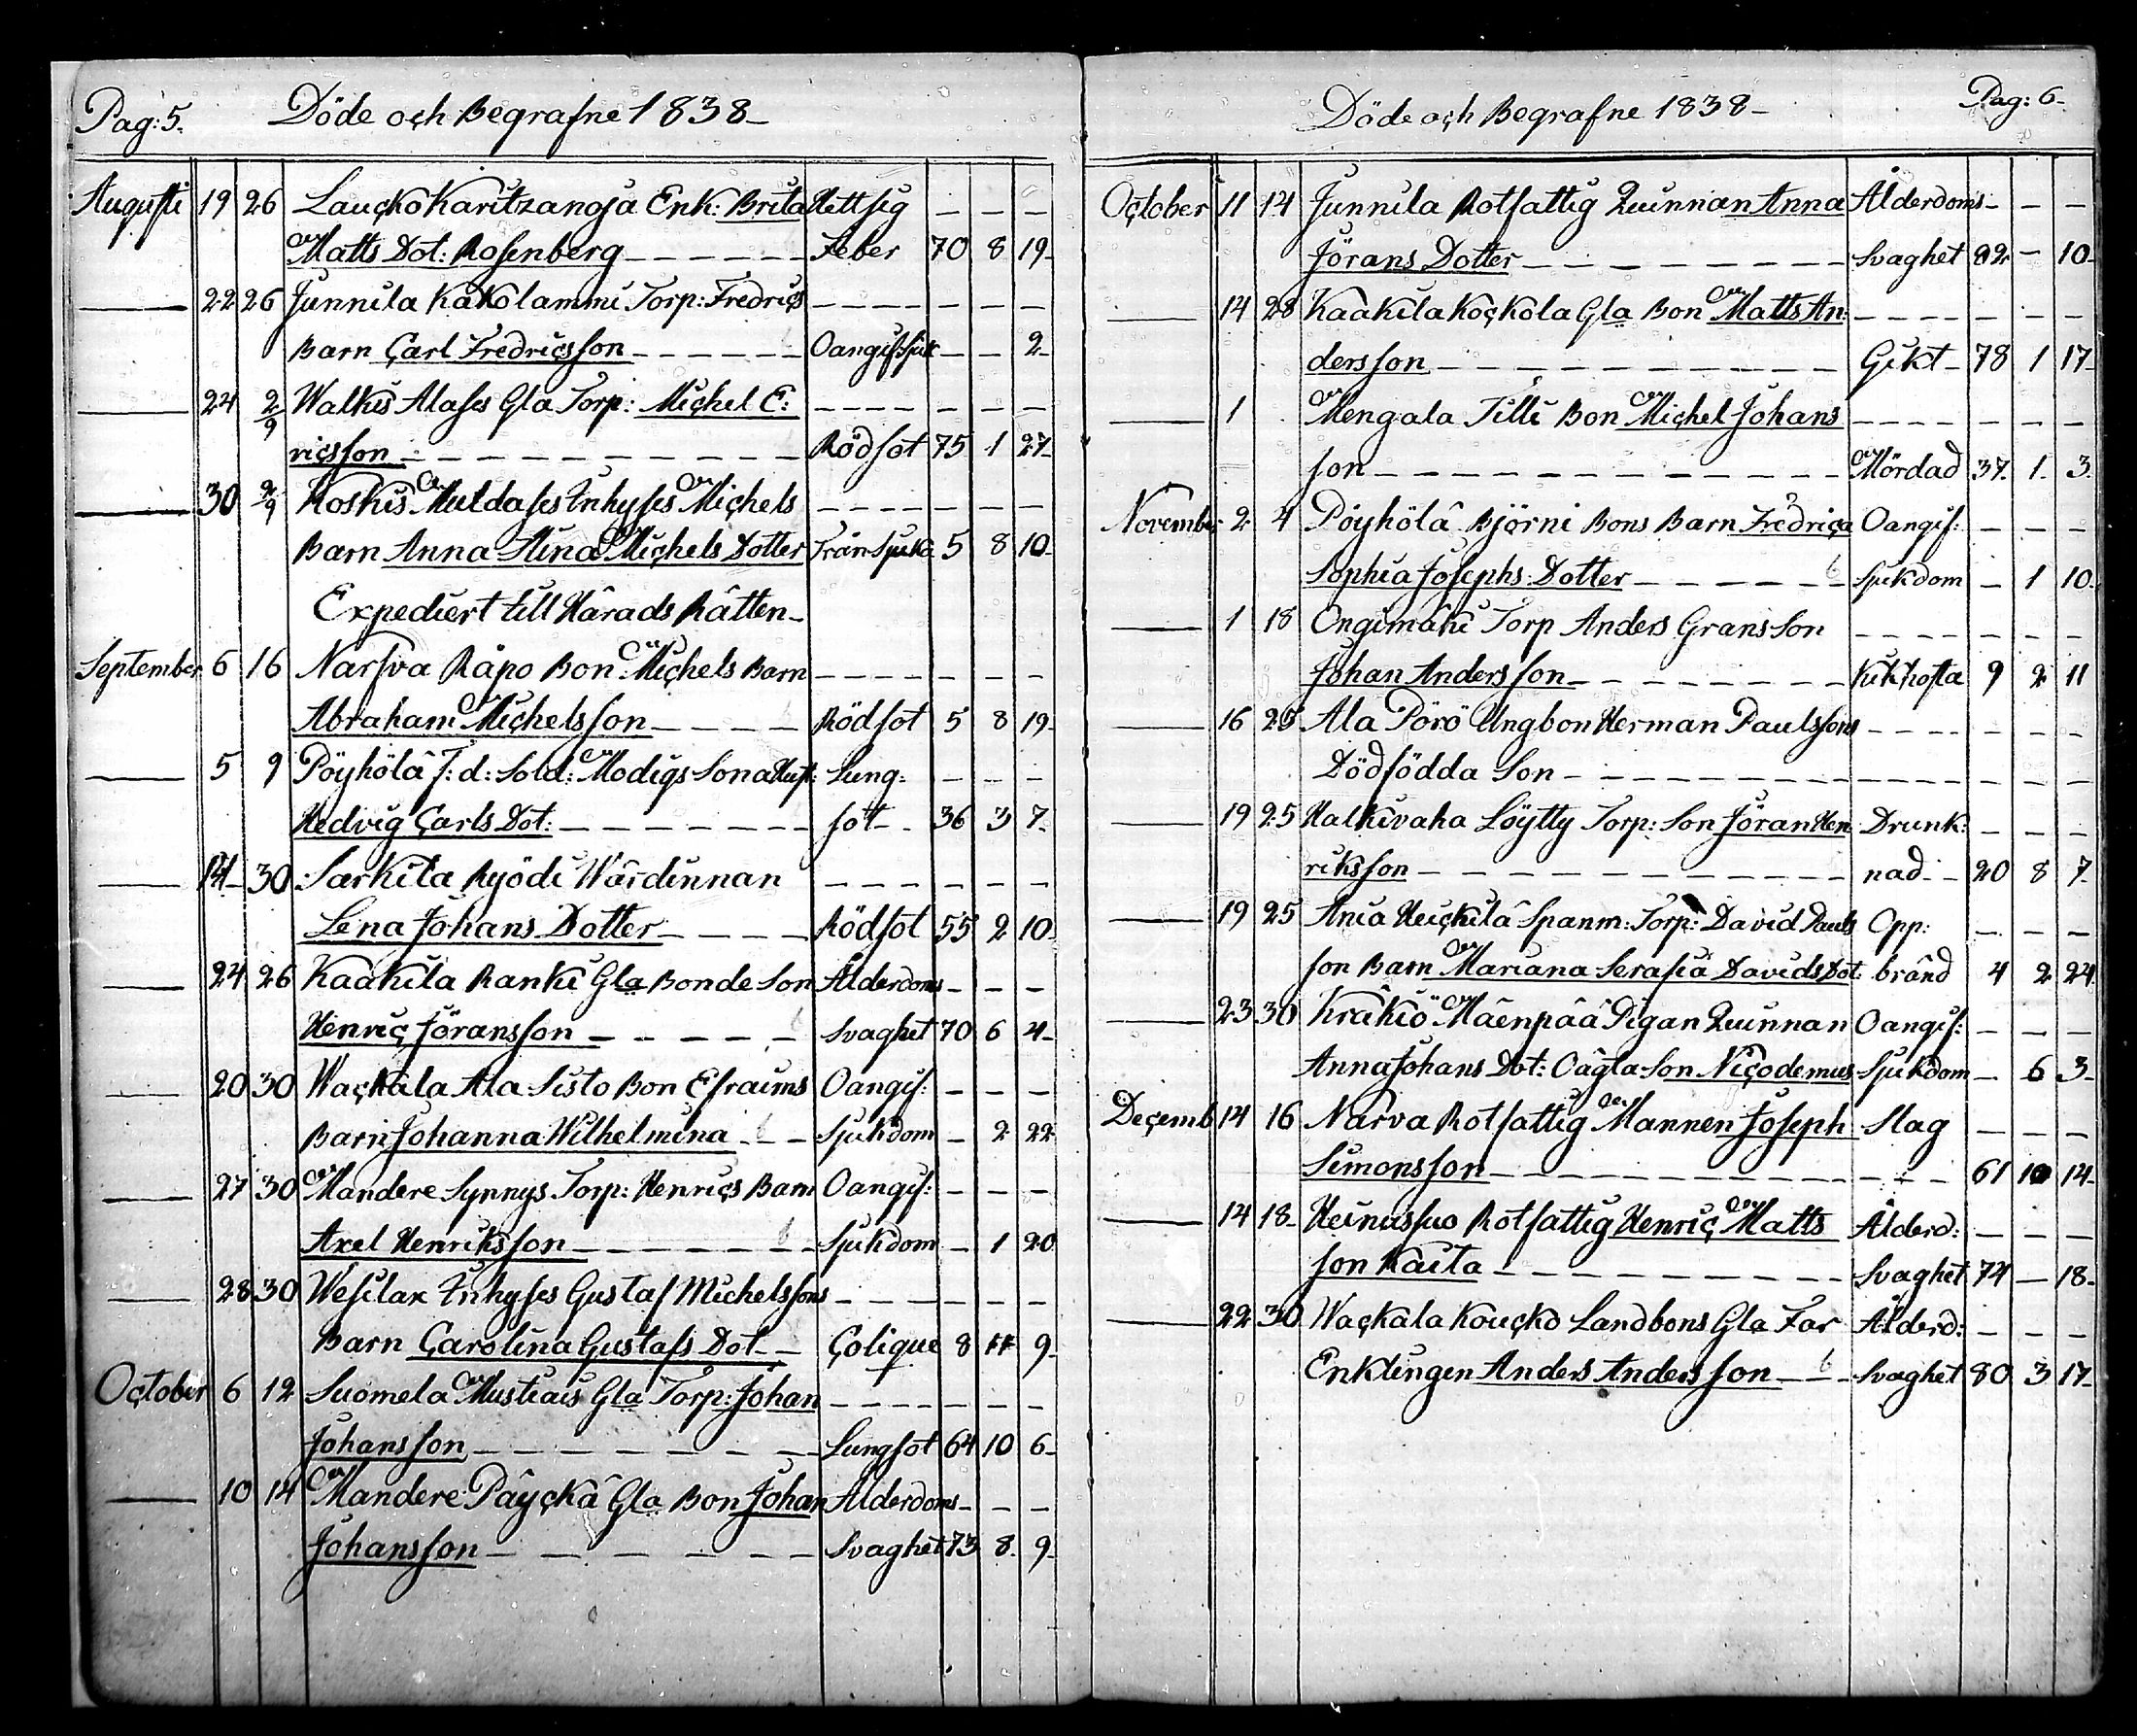 Pag: 5. Döde och Begrafne 1838
Augusti 19 26 Lauçko Karitzanoja Enk: Brita Hettsig — — —
Matts Dot: Rosenberg — Feber 70 8 19
— 22 26 Junnila Kakolammi Torp: Fredriçs — — —
Barn Çarl Fredriçsson — Oangif: Sjuk — — 2
— 24 2/9 Walkis Alases Gla Torp: Miçhel E: — — —
riçsson — Rödsot 75 1 27
— 30 2/9 Koskis Muldases Inhyses Miçhels — — —
Barn Anna Stina Miçhels Dotter Trånsjuka 5 8 10
Expediert till Härads Rätten
September 6 16 Narfva Räpo Bon: Miçhels Barn — — —
Abraham Miçhelsson — Rödsot 5 8 19
— 5 9 Pöyhölä f: d: Sold: Modigs Sona Hust: Lung: — — —
Hedvig Çarls Dot: — sot 36 3 7
— 14 30 Sarkila Ryödi Wärdinnan — — —
Lena Johans Dotter — Rödsot 55 2 10
— 24 26 Kaakila Ranki Gla Bonde Son Ålderdoms — — —
Henriç Göransson — Svaghet 70 6 4
— 20 30 Waçkala Ala Sisto Bon Efraims Oangif: — — —
Barn Johanna Wilhelmina — Sjukdom — 2 22
— 27 30 Mandere Synnys Torp: Henriçs Barn Oangif: — — —
Axel Henriksson — Sjukdom — 1 20
— 28 30 Wesilax Inhyses Gustaf Michelssons — — —
Barn Çarolina Gustafs Dot — Çolique 8 11 9
Oçtober 6 12 Suomela Mustiais Gla Torp: Johan — — —
Johansson — Lungsot 64 10 6
— 10 14 Mandere Päyçkä Gla Bon Johan Ålderdoms — — —
Johansson — Svaghet 73 8 9
Döde och Begrafne 1838 Pag: 6
Oçtober 11 14 Junnila Rotfattig Quinnan Anna Ålderdoms — — —
Jörans Dotter — Svaghet 82 — 10
— 14 28 Kaakila Koçkola Gla Bon Matts An — — —
dersson — Gikt 78 1 17
— 1 Mengala Tilli Bon Miçhel Johans — — —
son — Mördad 37 1 3
November 2 4 Pöyhölä Björni Bons Barn Fredriça Oangif: — — —
Sophia Josephs Dotter — Sjukdom — 1 10
— 1 18 Ongimäki Torp Anders Grans Son — — —
Johan Andersson — Kikhosta 9 2 11
— 16 25 Ala Pörö Ungbon Herman Paulssons — — —
Dödfödda Son — — —
— 19 25 Halkivaha Löytty Torp: Son Jöran Hen Drunk: — — —
riksson — nad 20 8 7
— 19 25 Ania Heiçkilä Spanm: Torp: David Pauls Opp: — — —
son Barn Mariana Serafia Davids Dot: bränd 4 2 24
— 23 30 Kräkiö Mäenpää Pigan Quinnan Oangif: — — —
Anna Johans Dot: Oägta Son Niçodemus Sjukdom — 6 3
Deçemb 14 16 Narva Rotfattig Mannen Joseph Slag — — —
Simonsson — 61 10 14
— 14 18 Heinussuo Rotfattig Henriç Matts Ålderd: — — —
son Kaita — Svaghet 74 — 18
— 22 30 Waçkala Kouçko Landbons Gla Far Ålderd: — — —
Enklingen Anders Andersson — Svaghet 80 3 17